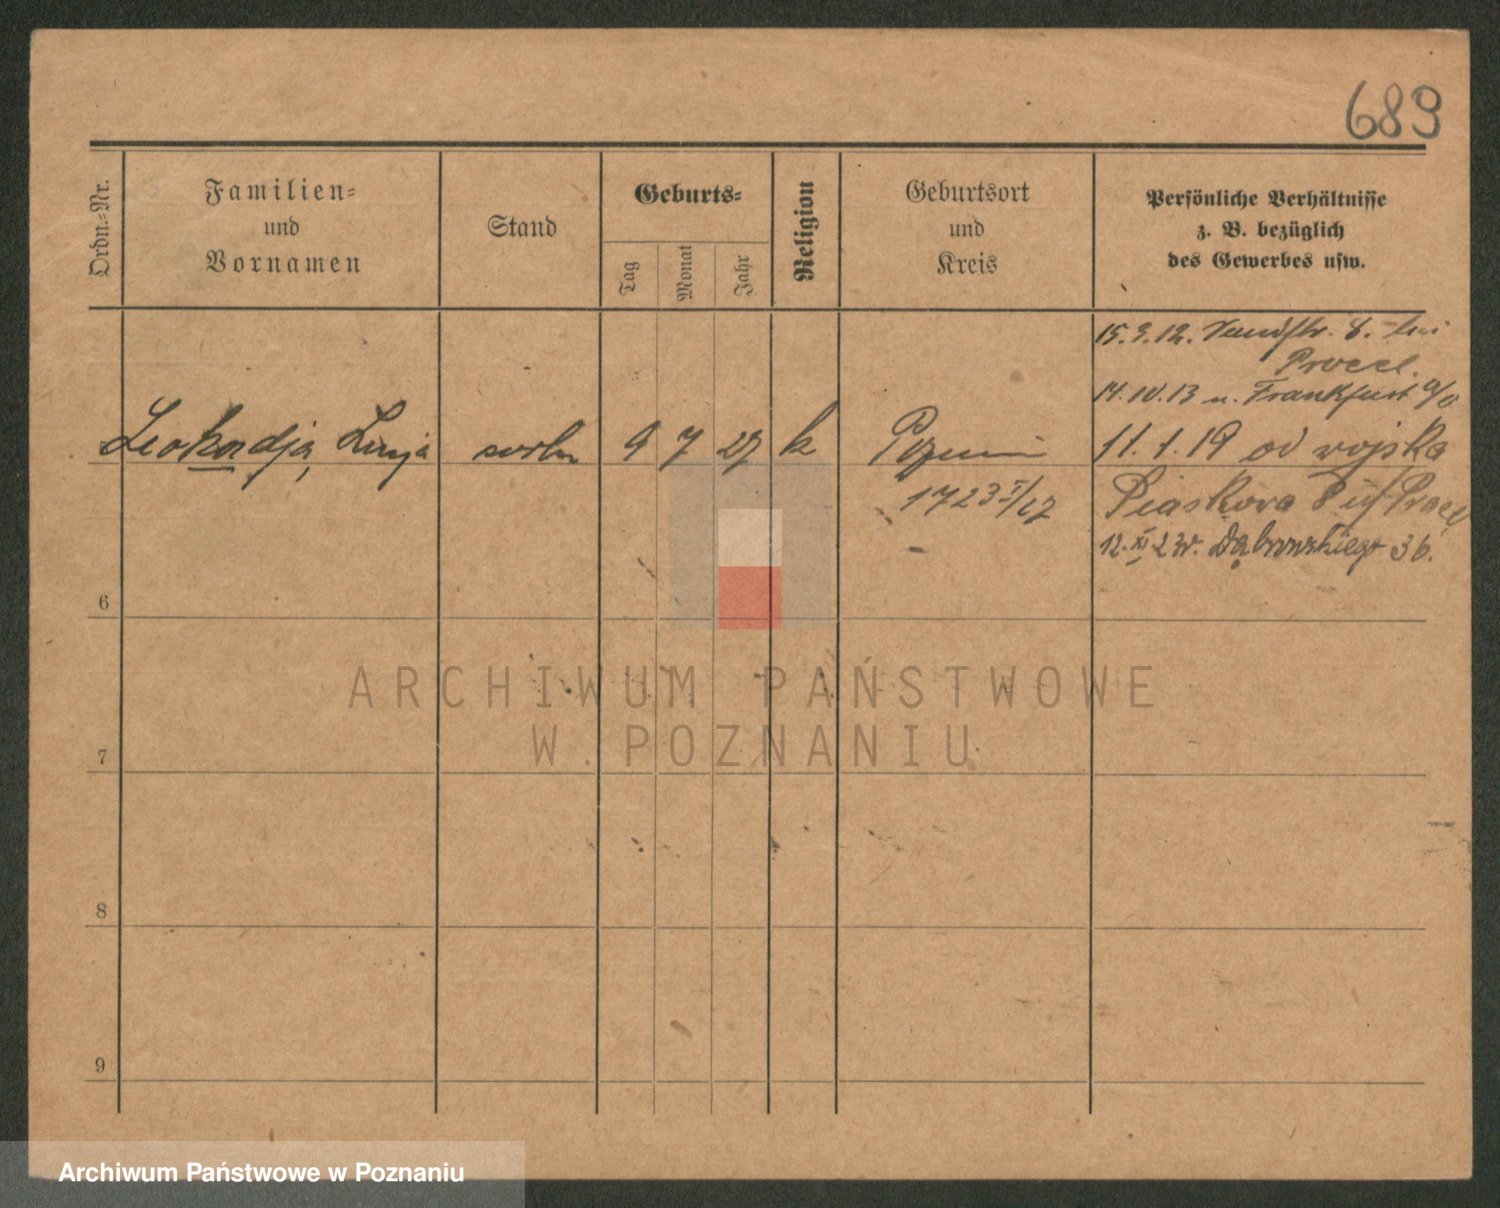 689
Ordn.=Nr.
Familien=
und
Vornamen
Stand
Geburts=
Tag
Monat
Jahr
Religion
Geburtsort
und
Kreis
Persönliche Verhältnisse
z. B. bezüglich
des Gewerbes usw.
15.3.12. 8. bei
14.10.13 n. Frankfurt a/O
Leokadja, 9 7 27 k 11.1.19 od wojska
1723 I/27 Piaskowa 8
12.XI.23r. Dąbrowskiego 36.
6
7
8
9
ARCHIWUM PAŃSTWOWE
W POZNANIU
Archiwum Państwowe w Poznaniu